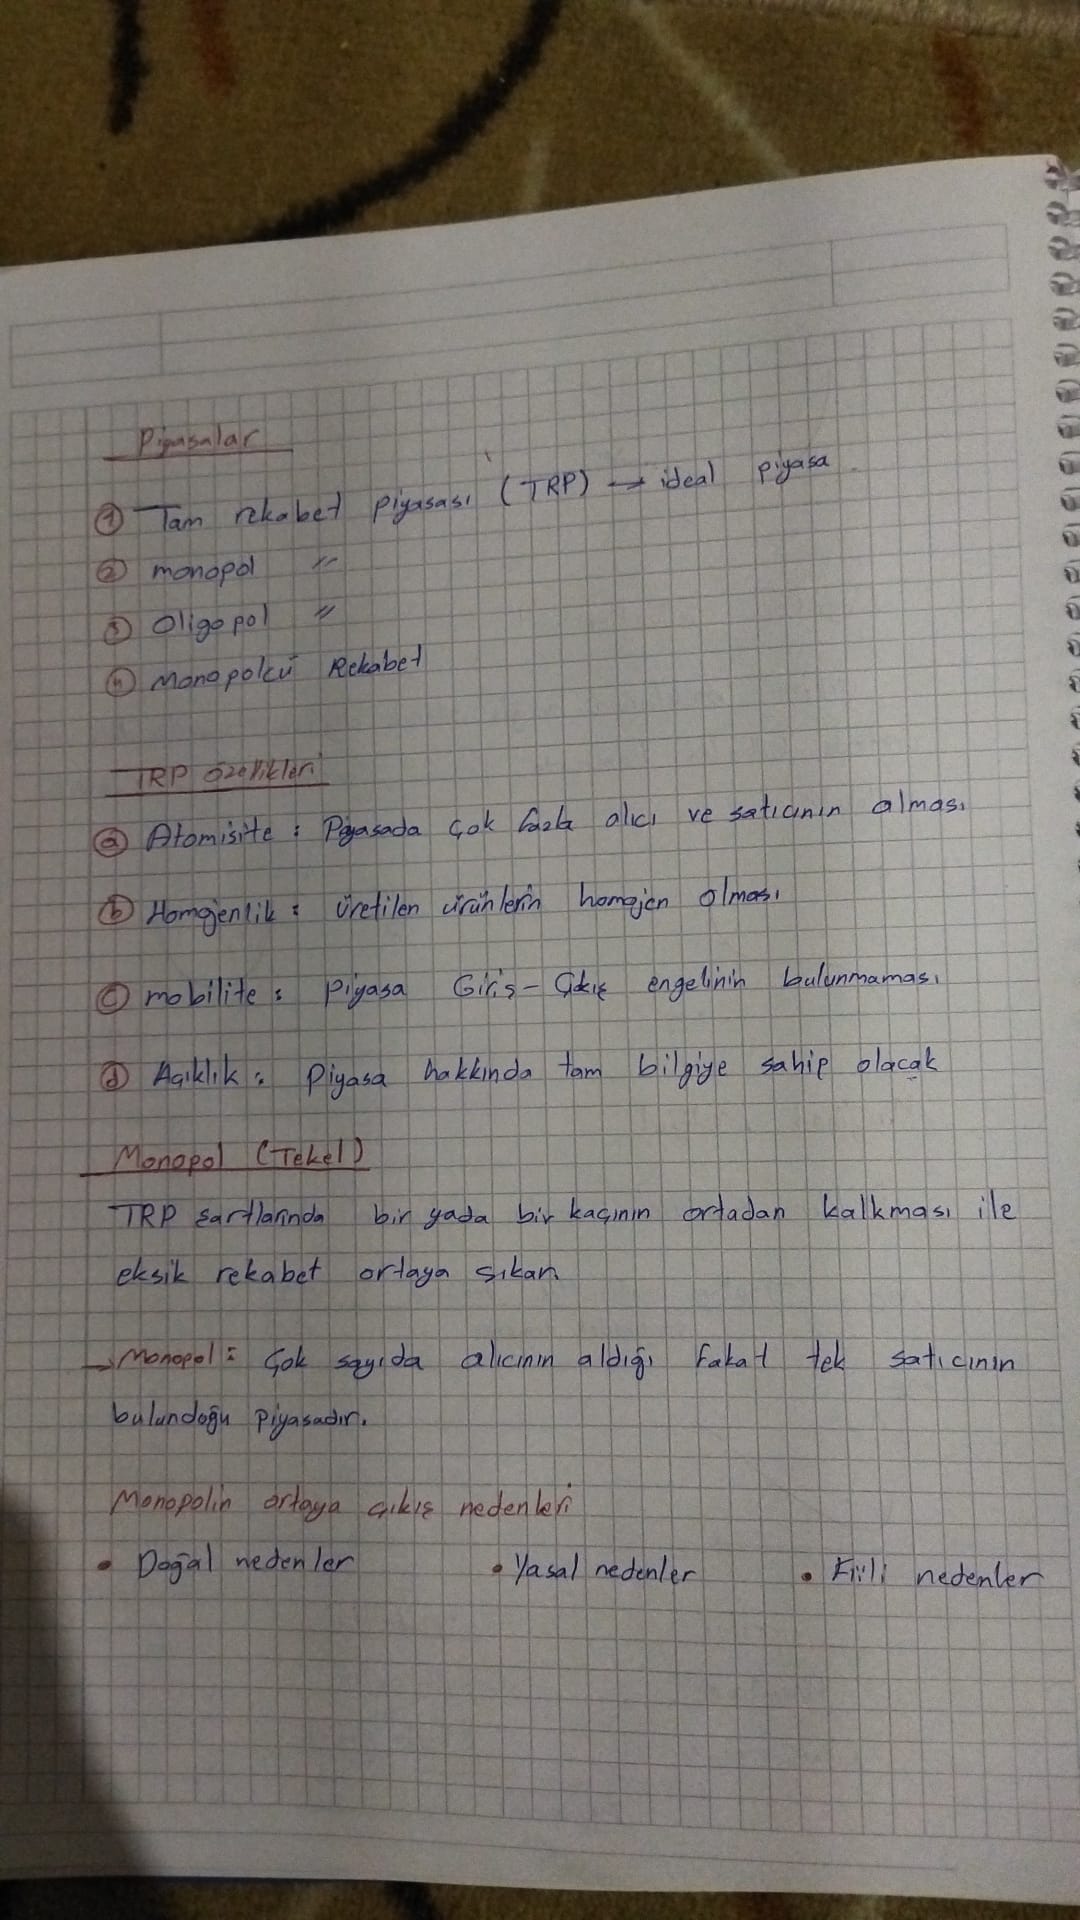 Piyasalar
① Tam rekabet piyasası (TRP) → ideal piyasa
② monopol "
③ Oligopol "
④ Monopolcü Rekabet
TRP özellikleri
ⓐ Atomisite : Piyasada çok fazla alıcı ve satıcının olması
ⓑ Homojenlik : üretilen ürünlerin homojen olması
ⓒ mobilite : Piyasa Giriş-Çıkış engelinin bulunmaması
ⓓ Açıklık : Piyasa hakkında tam bilgiye sahip olacak
Monopol (Tekel)
TRP şartlarında bir yada bir kaçının ortadan kalkması ile
eksik rekabet ortaya sıkan
→ Monopol : Çok sayıda alıcının aldığı Fakat tek satıcının
bulundoğu piyasadır.
Monopolin ortaya çıkış nedenleri
• Doğal nedenler • Yasal nedenler • Fiili nedenler